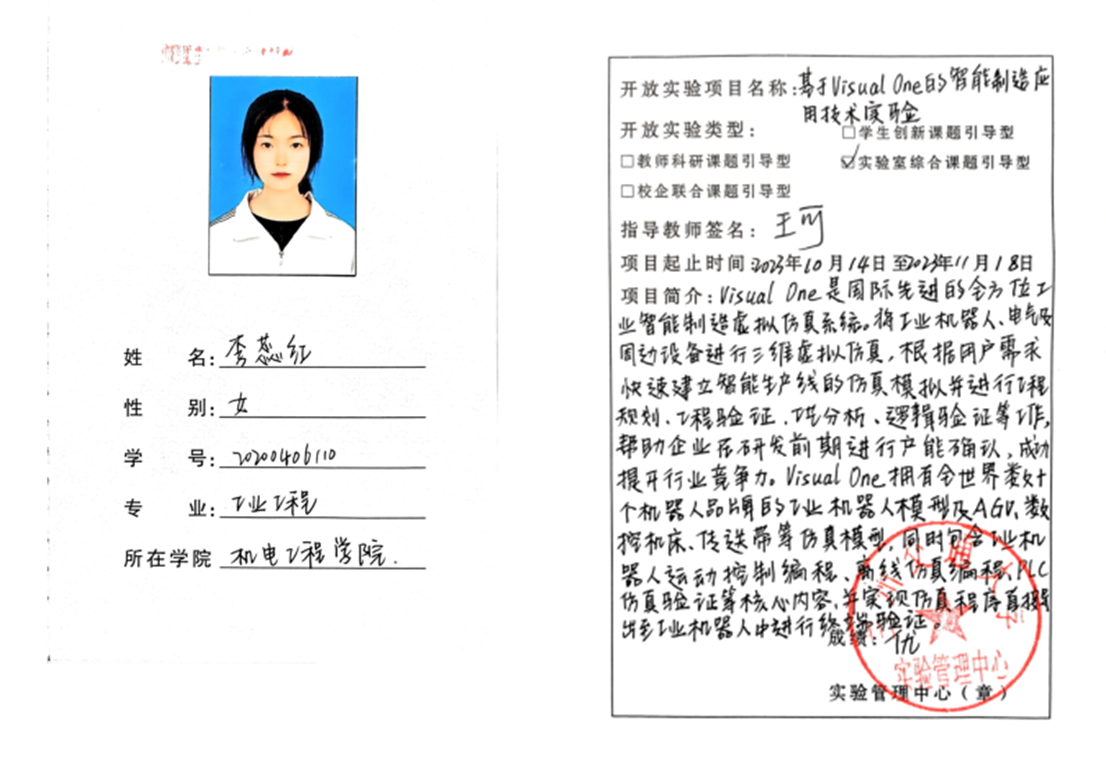 姓 名：李蕊红
性 别：女
学 号：20200406110
专 业：工业工程
所在学院 机电工程学院.
开放实验项目名称：基于Visual One的智能制造应
用技术实验
开放实验类型： □学生创新课题引导型
□教师科研课题引导型 ☑实验室综合课题引导型
□校企联合课题引导型
指导教师签名：王可
项目起止时间：2023年10月14日至2023年11月18日
项目简介：Visual One是国际先进的全方位工
业智能制造虚拟仿真系统。将工业机器人、电气及
周边设备进行三维虚拟仿真，根据用户需求
快速建立智能生产线的仿真模拟并进行工程
规划、工程验证、分析、逻辑验证等工作，
帮助企业在研发前期进行产能确认，成功
提升行业竞争力。Visual One拥有全世界类数十
个机器人品牌的工业机器人模型及AGV、数
控机床、传送带等仿真模型，同时包含工业机
器人运动控制编程、离线仿真编程、PLC
仿真验证等核心内容，并实现仿真程序直接导
出至工业机器人中进行终端验证。
成绩：优
实验管理中心
实验管理中心（章）